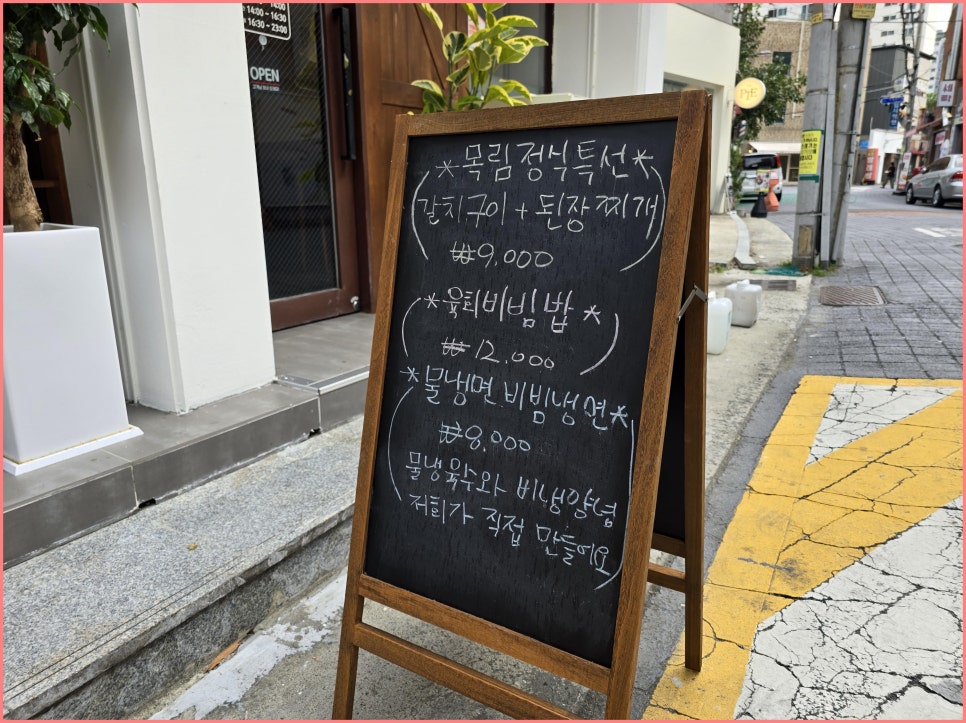 14:00 ~ 16:30
16:30 ~ 23:00
OPEN
*목림정식특선*
갈치구이 + 된장찌개
₩9,000
*육회비빔밥*
₩12,000
*물냉면 비빔냉면*
₩8,000
물냉육수와 비냉양념
저희가 직접 만들어요